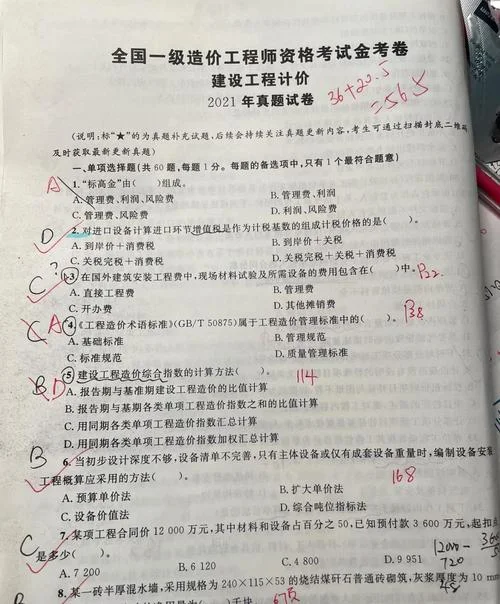 全国一级造价工程师资格考试金考卷
建设工程计价
2021年真题试卷
36+20.5
=56.5
(说明:标“★”的为真题补充试题,后续会持续关注真题更新内容,考生可通过扫描封底二维码
及时获取最新更新真题)
一、单项选择题(共60题,每题1分。每题的备选项中,只有1个最符合题意)
A
1.“标高金”由( )组成。
A.管理费、利润、风险费 B.管理费、利润
C.管理费、风险费 D.利润、风险费
D
2.对进口设备计算进口环节增值税是作为计税基数的组成计税价格的是( )。
A.到岸价+消费税 B.到岸价+关税
C.关税完税价格+消费税 D.关税完税价格+关税+消费税
C ?
3.在国外建筑安装工程费中,现场材料试验及所需设备的费用包含在( )中。 P32
A.直接工程费 B.管理费
C.开办费 D.其他摊销费
C A
4.《工程造价术语标准》(GB/T 50875)属于工程造价管理标准中的( )。 P38
A.基础标准 B.管理规范
C.标准规范 D.质量管理标准
B D
5.建设工程造价综合指数的计算方法( )。 114
A.报告期与基准期建设工程造价的比值计算
B.报告期与基期各类单项工程造价指数之和的比值计算
C.用同期各类单项工程造价指数汇总计算
D.用同期各类单项工程造价指数加权汇总计算
B
6.当初步设计深度不够,设备清单不完善,只有主体设备或仅有成套设备重量时,编制设备安装
工程概算应采用的方法( )。 168
A.预算单价法 B.扩大单价法
C.设备价值法 D.综合吨位指标法
C
7.某项工程合同价12 000万元,其中材料和设备占百分之50,已知预付款3 600万元,起扣点
是多少( )。
A.7 200 B.6 120 C.4 800 D.9 951
1200-
720
48
8.某一砖半厚混水墙,采用规格为240×115×53的烧结煤矸石普通砖砌筑,灰浆厚度为10 mm
千块 67页